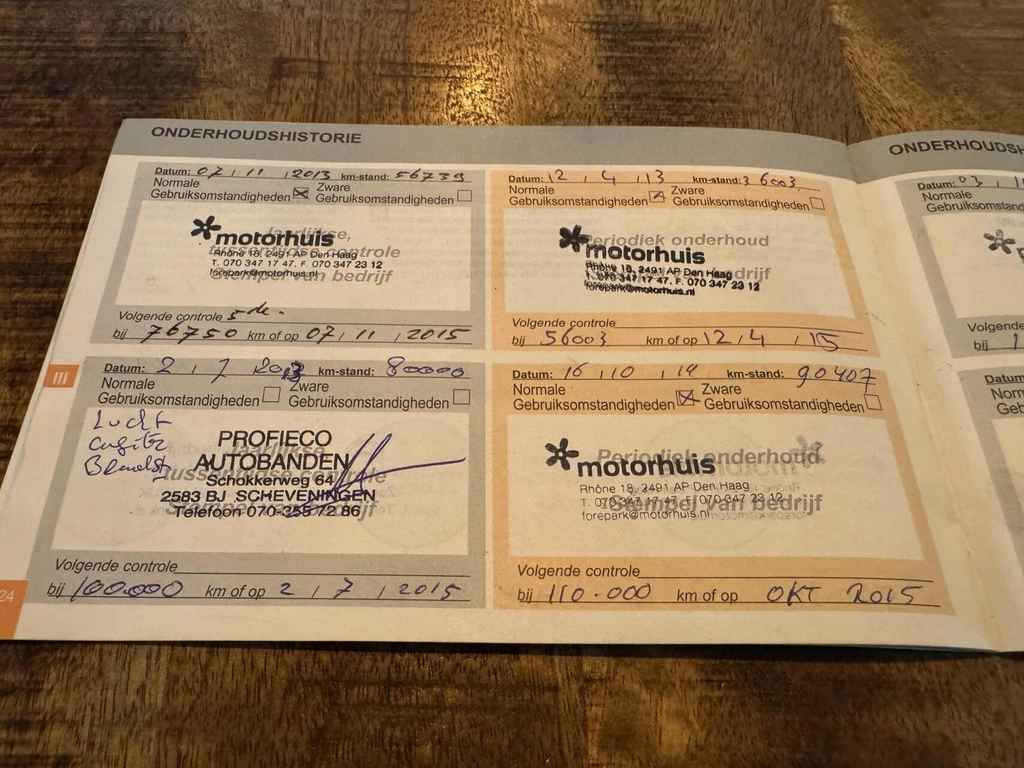 ONDERHOUDSHISTORIE
Datum: 07, 11, 2013 km-stand: 56739
Normale Gebruiksomstandigheden Zware
motorhuis
Jaarlijkse, tussentijdse controle
Rhône 18, 2491 AP Den Haag
T. 070 347 17 47. F. 070 347 23 12
forepark@motorhuis.nl
Stempel van bedrijf
Volgende controle 5 de.
bij 76750 km of op 07, 11, 2015
Datum: 12, 4, 13 km-stand: 36003
Normale Gebruiksomstandigheden Zware Gebruiksomstandigheden
Periodiek onderhoud
motorhuis
Rhône 18, 2491 AP Den Haag
T. 070 347 17 47. F. 070 347 23 12
forepark@motorhuis.nl
Volgende controle
bij 56003 km of op 12, 4, 15
III
Datum: 2, 7, km-stand: 80000
Normale Gebruiksomstandigheden Zware Gebruiksomstandigheden
Lucht
PROFIECO
AUTOBANDEN
Schokkerweg 64
2583 BJ SCHEVENINGEN
Telefoon 070-355 72 86
Volgende controle
bij 100.000 km of op 2, 7, 2015
Datum: 16, 10, 14 km-stand: 90407
Normale Gebruiksomstandigheden Zware Gebruiksomstandigheden
Periodiek onderhoud
motorhuis
Rhône 18, 2491 AP Den Haag
T. 070 347 17 47. F. 070 347 23 12
forepark@motorhuis.nl
Stempel van bedrijf
Volgende controle
bij 110.000 km of op OKT 2015
24
ONDERHOUDSH
Datum: 03,
Normale
Gebruiksomstand
Volgende
bij
Datum
Norm
Gebru
Volge
bij